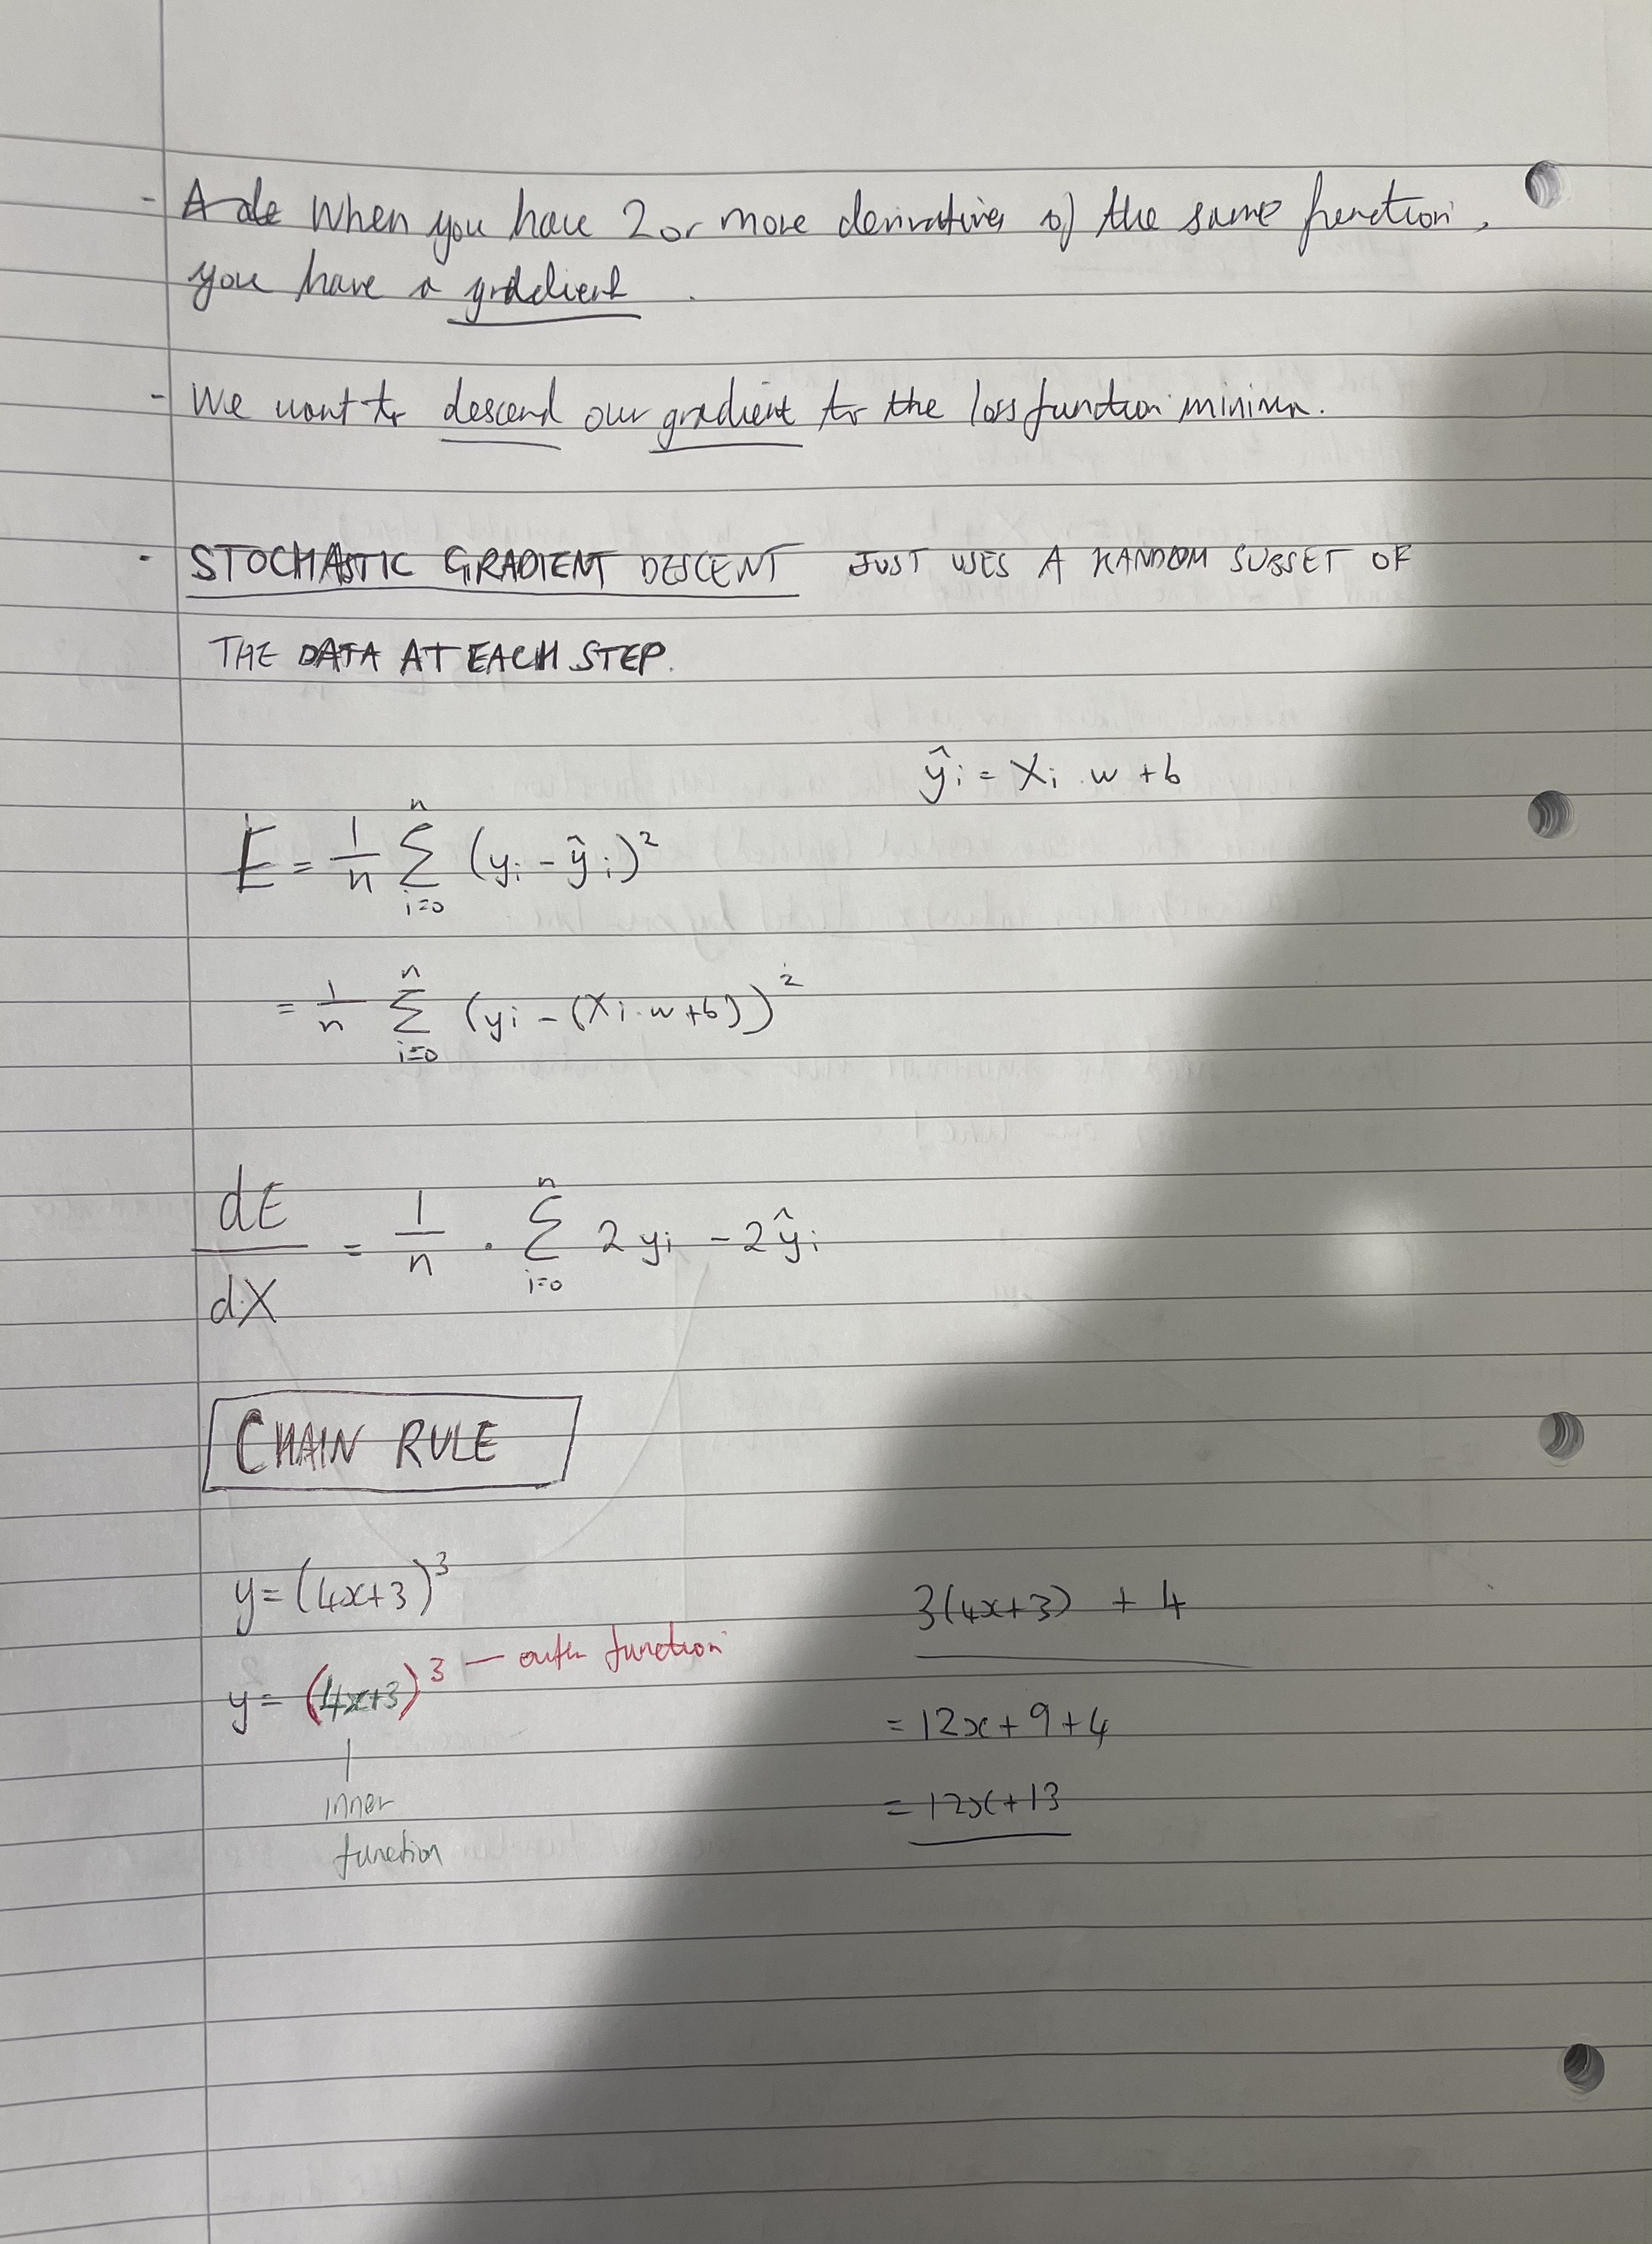 - A de When you have 2 or more derivatives of the same function,
you have a gradient.
- We want to descend our gradient to the loss function minima.
- STOCHASTIC GRADIENT DESCENT JUST USES A RANDOM SUBSET OF
THE DATA AT EACH STEP.
ŷi = Xi · w + b
E = 1/n Σ(i=0 to n) (yi - ŷi)²
= 1/n Σ(i=0 to n) (yi - (Xi · w + b))²
dE/dX = 1/n · Σ(i=0 to n) 2yi - 2ŷi
CHAIN RULE
y = (4x+3)³
y = (4x+3)³ — outer function
inner
function
3(4x+3) + 4
= 12x + 9 + 4
= 12x + 13